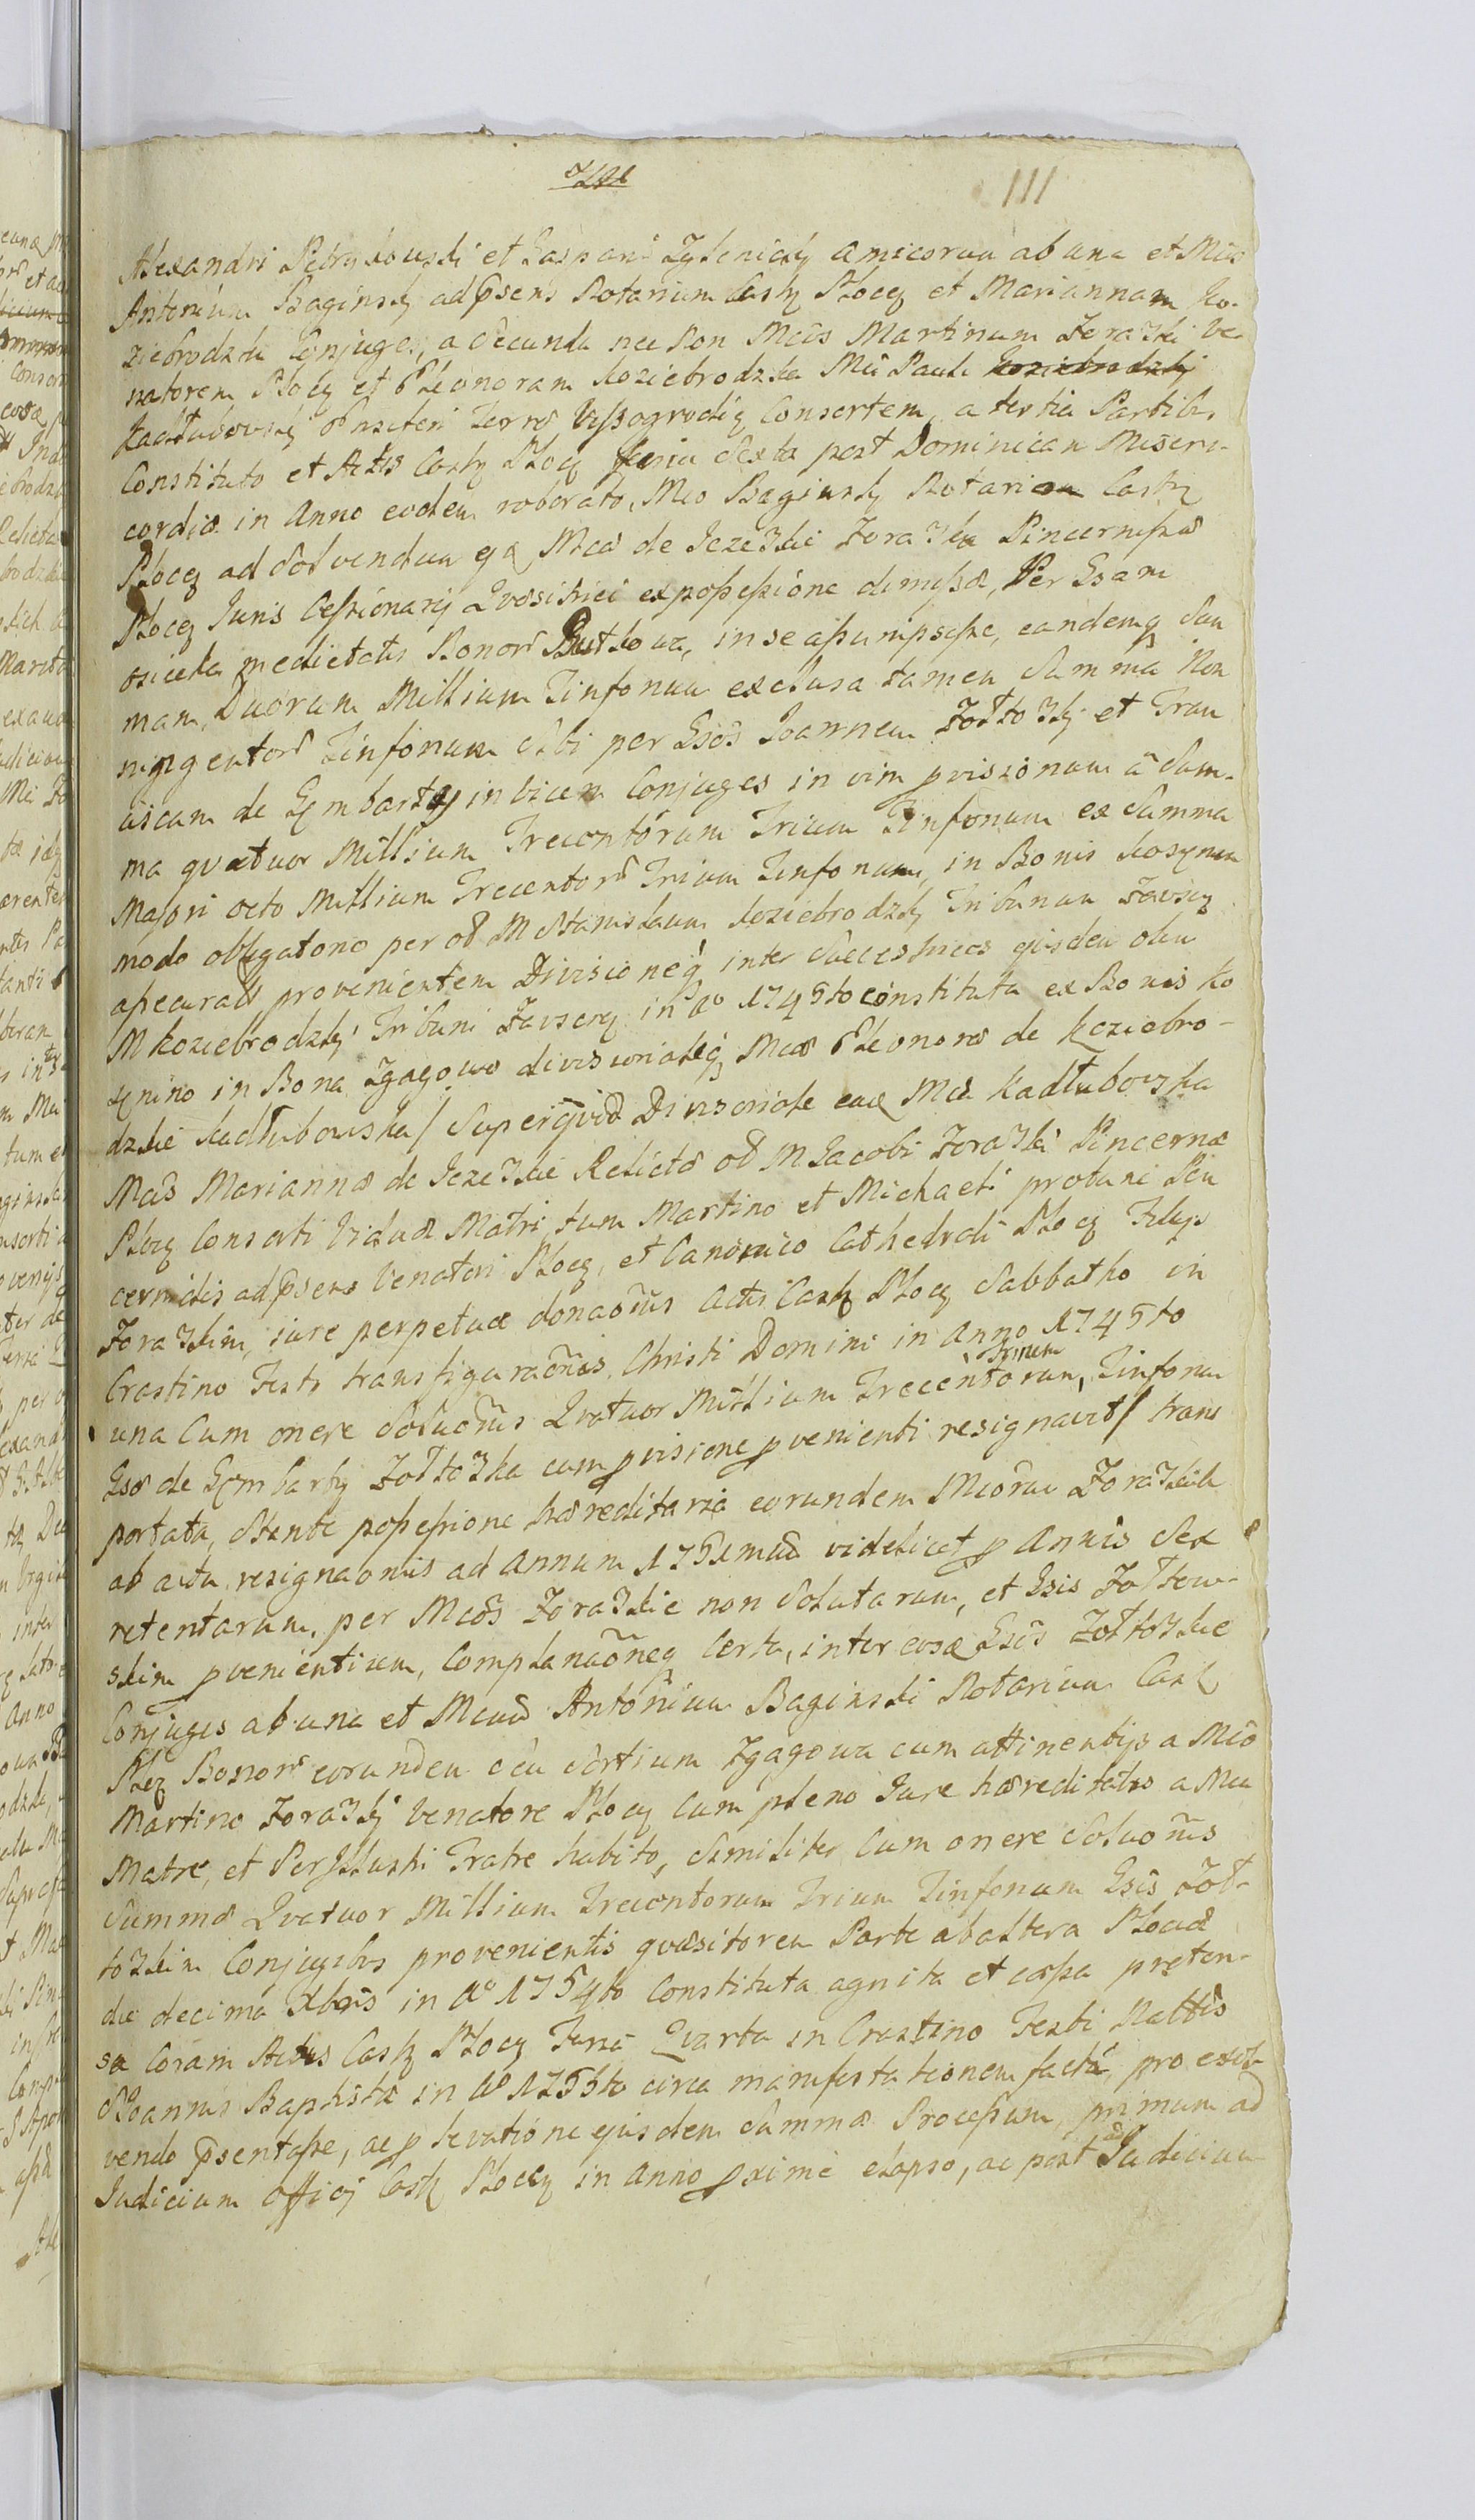 111
Alexandri Pętrykowski et Gaspari Zglenicky amicorum ab una et Mĩcũ
Antonium Baginsky ad p̃sens Notarium Castr̃ Plocẽ et Mariannam Ko-
ziebrodzka Conjuges, a secunda nec non Mĉos Martinum Zorawski Ve-
natorem Plocẽ et Eleonoram Koziebrodzka Mĉi Pauli Koziebrodzky
Kadłubowsky Terræ Vyssogrodien̄ Consortem, a tertia Partibus
Constituto et Actis Castr̃ Plocẽ feria Sexta post Dominicam Miseri-
cordiæ in Anno eodem roborato, Mĉo Baginsky Notario Castr̃
Plocẽ ad Solvendum Mĉæ de Jezewskie Zorawska Pincernissæ
Plocẽ Juris Cessionarij Qvæsitrici ex possessione dimissæ, Per Gsam
medietatis Bonor̃ Rutkowa, in se assumpsisse, eandemq̃ Sum
mam, Duorum Millium Tinfonum exclusa tamen Summa Non
ningentor̃ Tinfonum Sibi per Gsos Joannem Zołtowsky et Fran
ciscam de Gembarty invicem Conjuges in vim p̃visionum a Sum-
ma qvatuor Millium Trecentorum Trium Tinfonum ex Summa
Majori octo Millium Trecentor̃ Trium Tinfonum, in Bonis Kosynin
modo obligatorio per oł M Stanislaum Koziebrodzky Tribunum Zavscẽ
assecurata provenientem Divisioneq̃ inter Successtrices ejusdem olim
M Koziebrodzky Tribuni Zavscrẽ in Aº 1745to constituta ex Bonis Ko
synino in Bona Zgagowo divisorialiq̃ Mĉæ Eleonoræ de Koziebro-
dzkie Kadłubowska / Superqvod Divisoriale eae Mĉa Kadłubowska
Mĉæ Mariannæ de Jezewskie Relictæ oł M Jacobi Zorawski Pincernæ
Plocẽ Consorti Viduæ Matri, tum Martino et Michaeli protunc Pin
cernidis ad p̃sens Venatori Plocẽ, et Canonico Cathedrali Plocẽ Filijs
Zorawskim, iure perpetuæ donaõnis Actis Castr̃ Plocẽ Sabbatho in
Crastino Festi transfiguraõnis Christi Domini in Anno 1745to
una Cum onere Soluõnis Qvatuor Millium Trecentorum, Trium Tinfonum
Gsæ de Gembarty Zołtowska cum p̃visione p̃venienti resignavit / trans
portata, Stante possessione hæreditaria eorundem Mĉorum Zorawskich
ab actu resignaõnis ad Annum 1751mum videlicet p̃ Annis Sex
retentarum, per Mĉos Zorawskie non Solutarum, et Gsis Zołtow-
skim p̃venientium, Complanaõneq̃ Certa, inter eosdẽ Gsos Zołtowskie
Conjuges ab una et Mcum Antonium Baginski Notarium Castr̃
Plocẽ Bonor̃ eorundem ceu Sortium Zgagowa cum attinentijs a Mĉo
Martino Zorawsky Venatore Plocẽ Cum pleno Jure hæreditatis a Mĉa
Matre, et Perillustri Fratre habito, Similiter Cum onere Soluõnis
Summæ Qvatuor Millium Trecentorum Trium Tinfonum Gsis Zoł-
towskim Conjugibus provenientis qvæsitorem Parte ab altera Plociæ
die decima Xbris in Aº 1754to Constituta agnita et cassa preten-
sa Coram Actis Castr̃ Plocẽ Feria Qvarta in Crastino Festi Nattis
S Joannis Baptistæ in Aº 1755to circa manifestationem facta, pro exol-
vendo p̃sentasse, ac p̃ levatione ejusdem Summæ Processum, primum ad
Judicium Officij Castr̃ Plocẽ in Anno p̃xime elapso, ac post ad Judicium